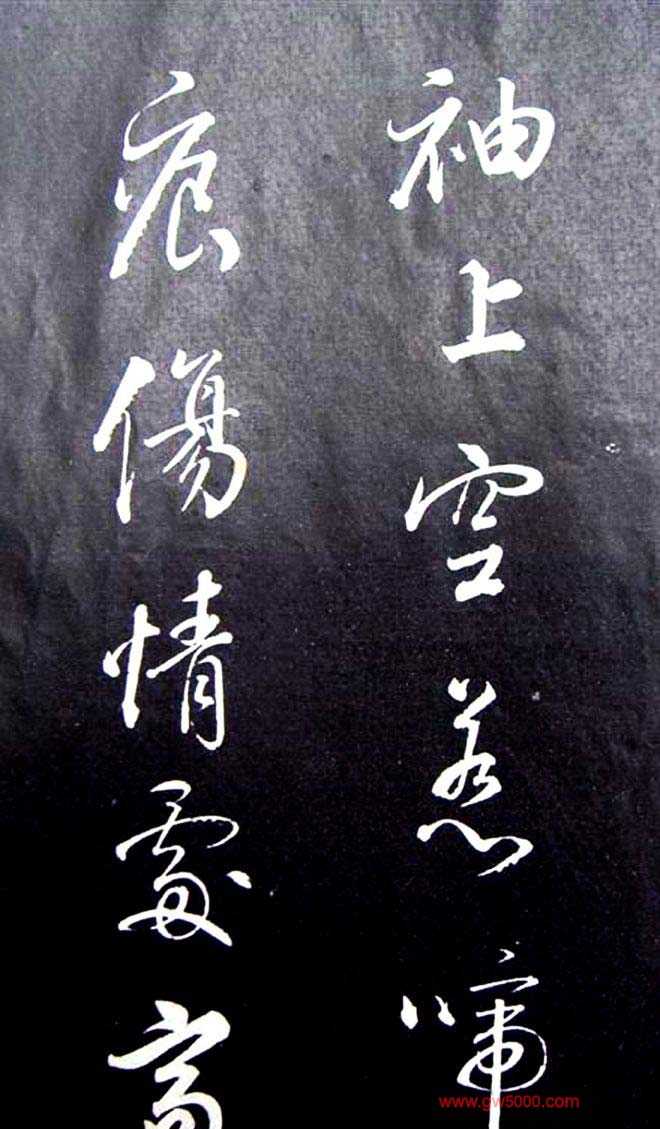 袖上空惹啼
痕傷情處高
www.gw5000.com